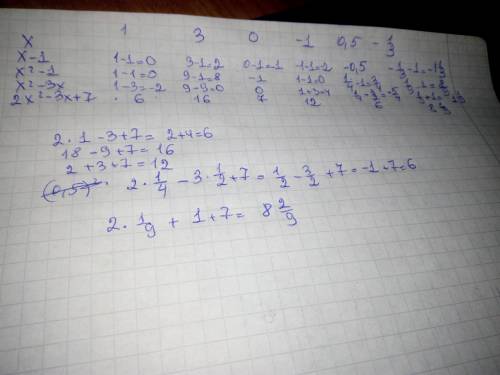 X 1 3 0 -1 0,5 -1/3
x-1 1-1=0 3-1=2 0-1=-1 -1-1=2 -0,5 -1/3-1=-1 1/3
x²-1 1-1=0 9-1=8 -1 1-1=0
x²-3x 1-3=-2 9-9=0 0 1+3=4
2x²-3x+7 6 16 7 12 6
2·1-3+7= 2+4=6
18-9+7=16
2+3+7=12
2·1/4-3·1/2+7=1/2-3/2+7=-1+7=6
2·1/9+1+7= 8 2/9